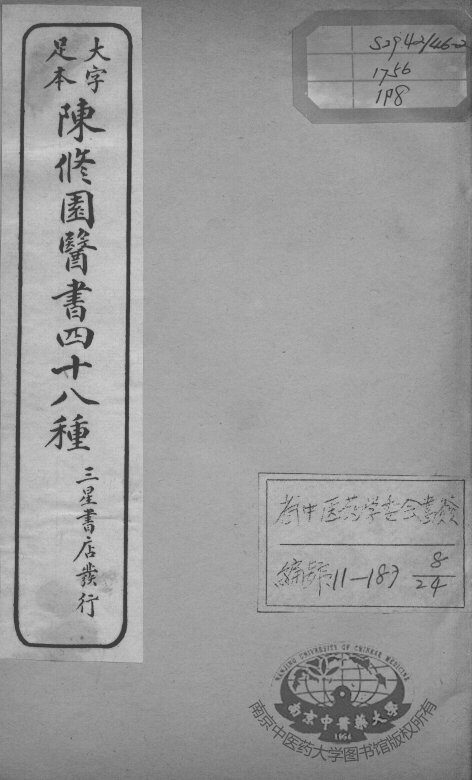 大字
足本
陳修園醫書四十八種
三星書店發行
S2942/46-2
1756
1P8
省中医药学会書
编号11-183 8/24
NANJING UNIVERSITY OF CHINESE MEDICINE
南京中醫藥大學
1954
南京中医药大学图书馆版权所有